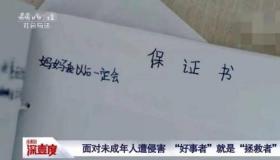 保证书
妈妈我以后一定会
深直度
面对未成年人遭侵害 “好事者”就是“拯救者”